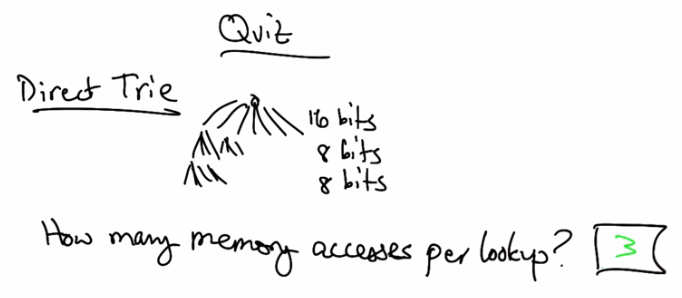 Quiz
Direct Trie
16 bits
8 bits
8 bits
How many memory accesses per lookup? 3